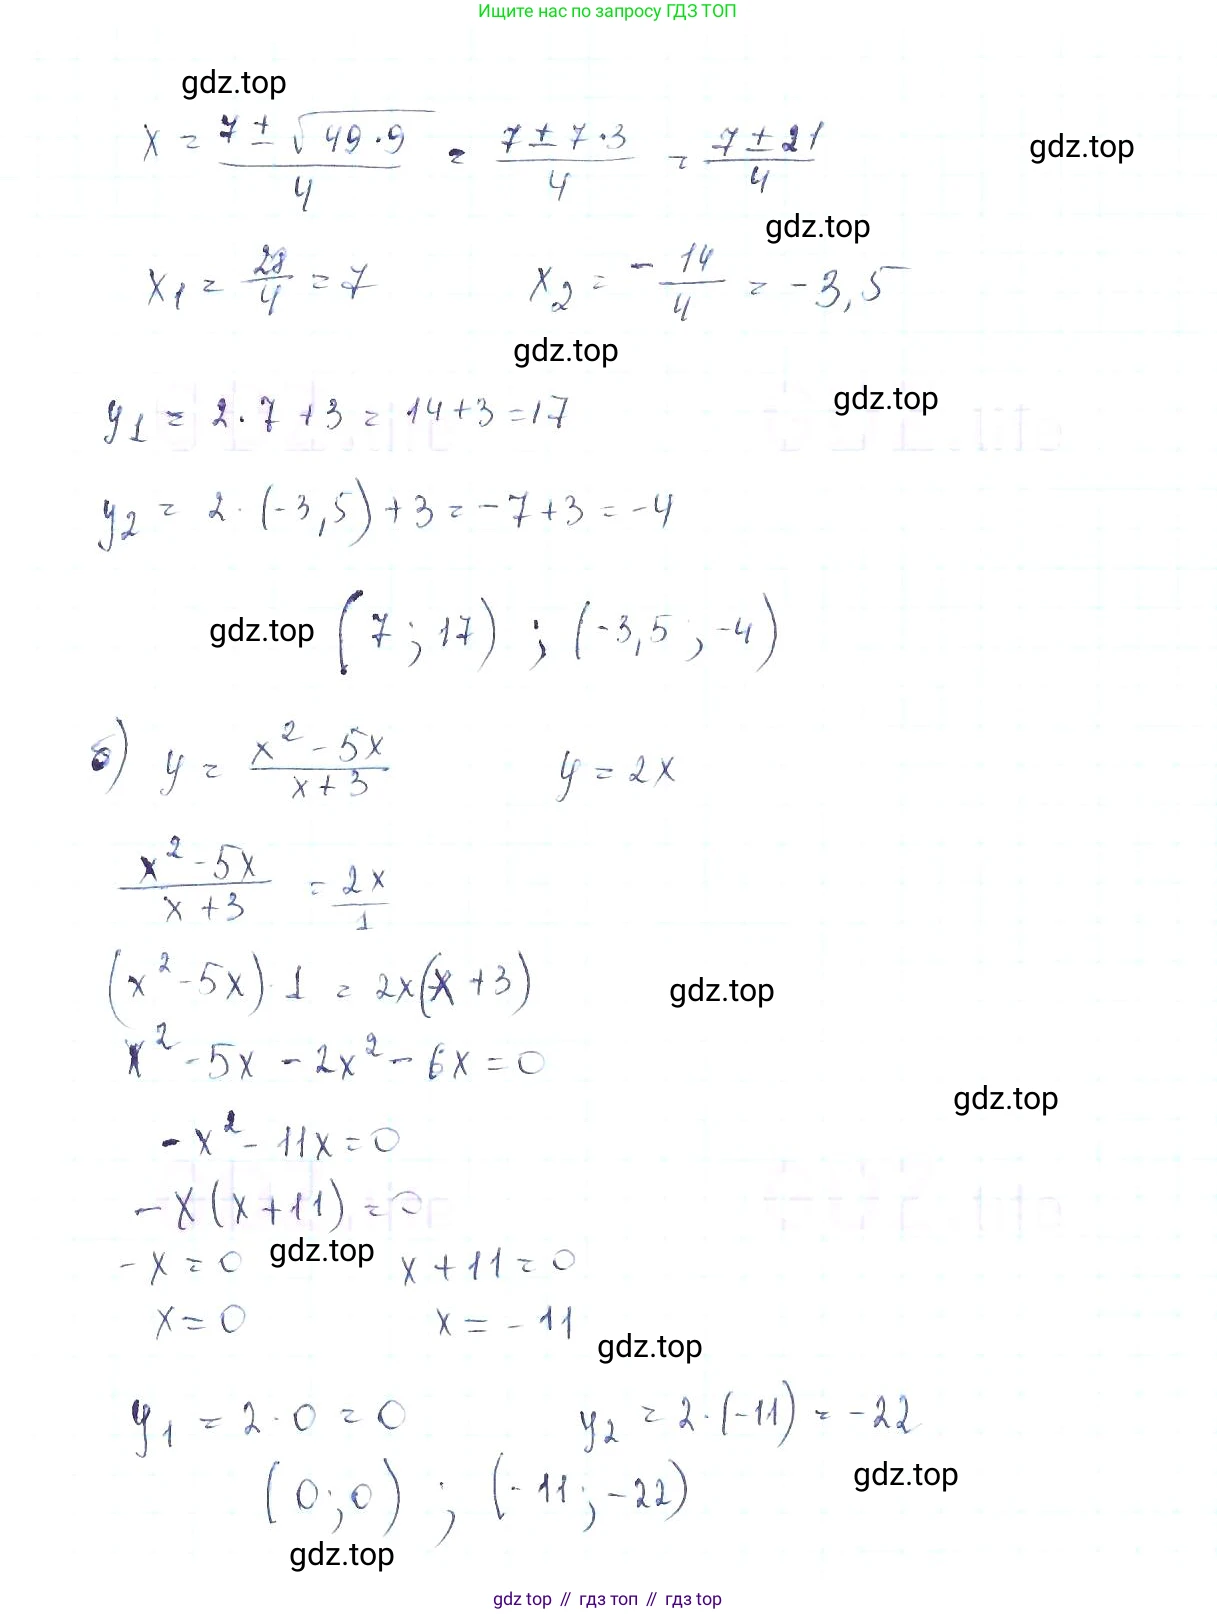 Ищите нас по запросу ГДЗ ТОП
gdz.top
x = (7 ± √(49·9))/4 = (7 ± 7·3)/4 = (7 ± 21)/4
gdz.top
gdz.top
x₁ = 28/4 = 7 x₂ = -14/4 = -3,5
gdz.top
gdz.top
y₁ = 2·7 + 3 = 14 + 3 = 17
y₂ = 2·(-3,5) + 3 = -7 + 3 = -4
gdz.top (7; 17) ; (-3,5; -4)
б) y = (x² - 5x)/(x + 3) y = 2x
(x² - 5x)/(x + 3) = 2x/1
(x² - 5x)·1 = 2x(x + 3)
gdz.top
x² - 5x - 2x² - 6x = 0
gdz.top
-x² - 11x = 0
-x(x + 11) = 0
gdz.top
-x = 0 x + 11 = 0
x = 0 x = -11
gdz.top
y₁ = 2·0 = 0 y₂ = 2·(-11) = -22
gdz.top
(0; 0) ; (-11; -22)
gdz.top
gdz top // гдз топ // гдз top